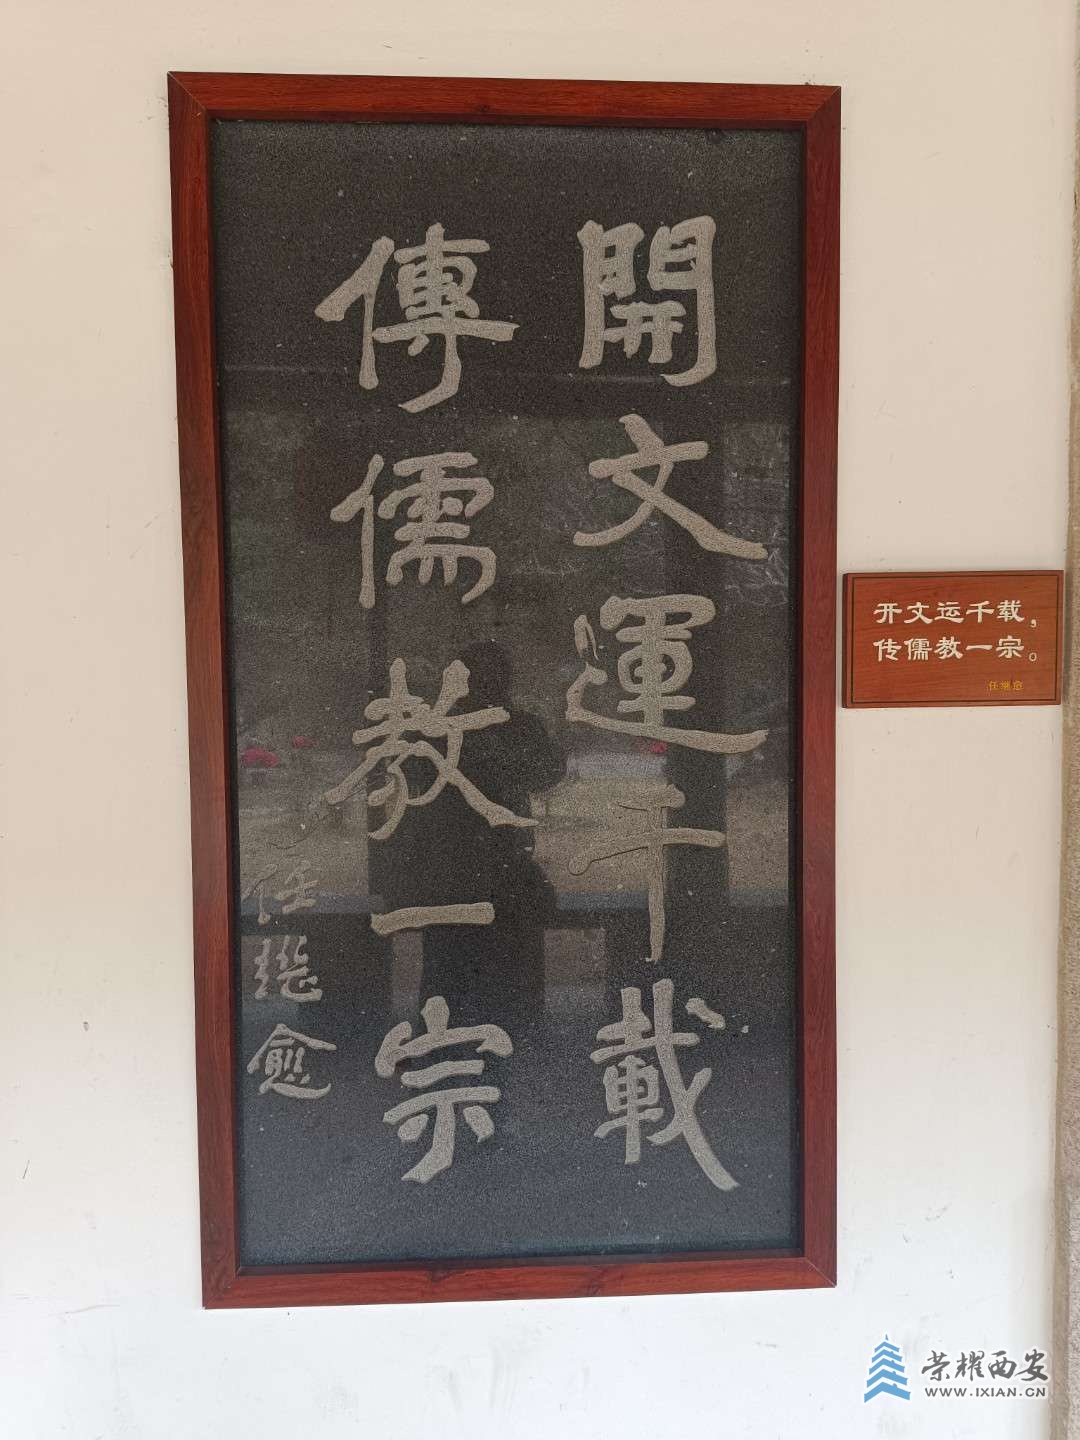 開文運千載
傳儒教一宗
任繼愈
开文运千载，
传儒教一宗。
任继愈
荣耀西安
WWW.IXIAN.CN